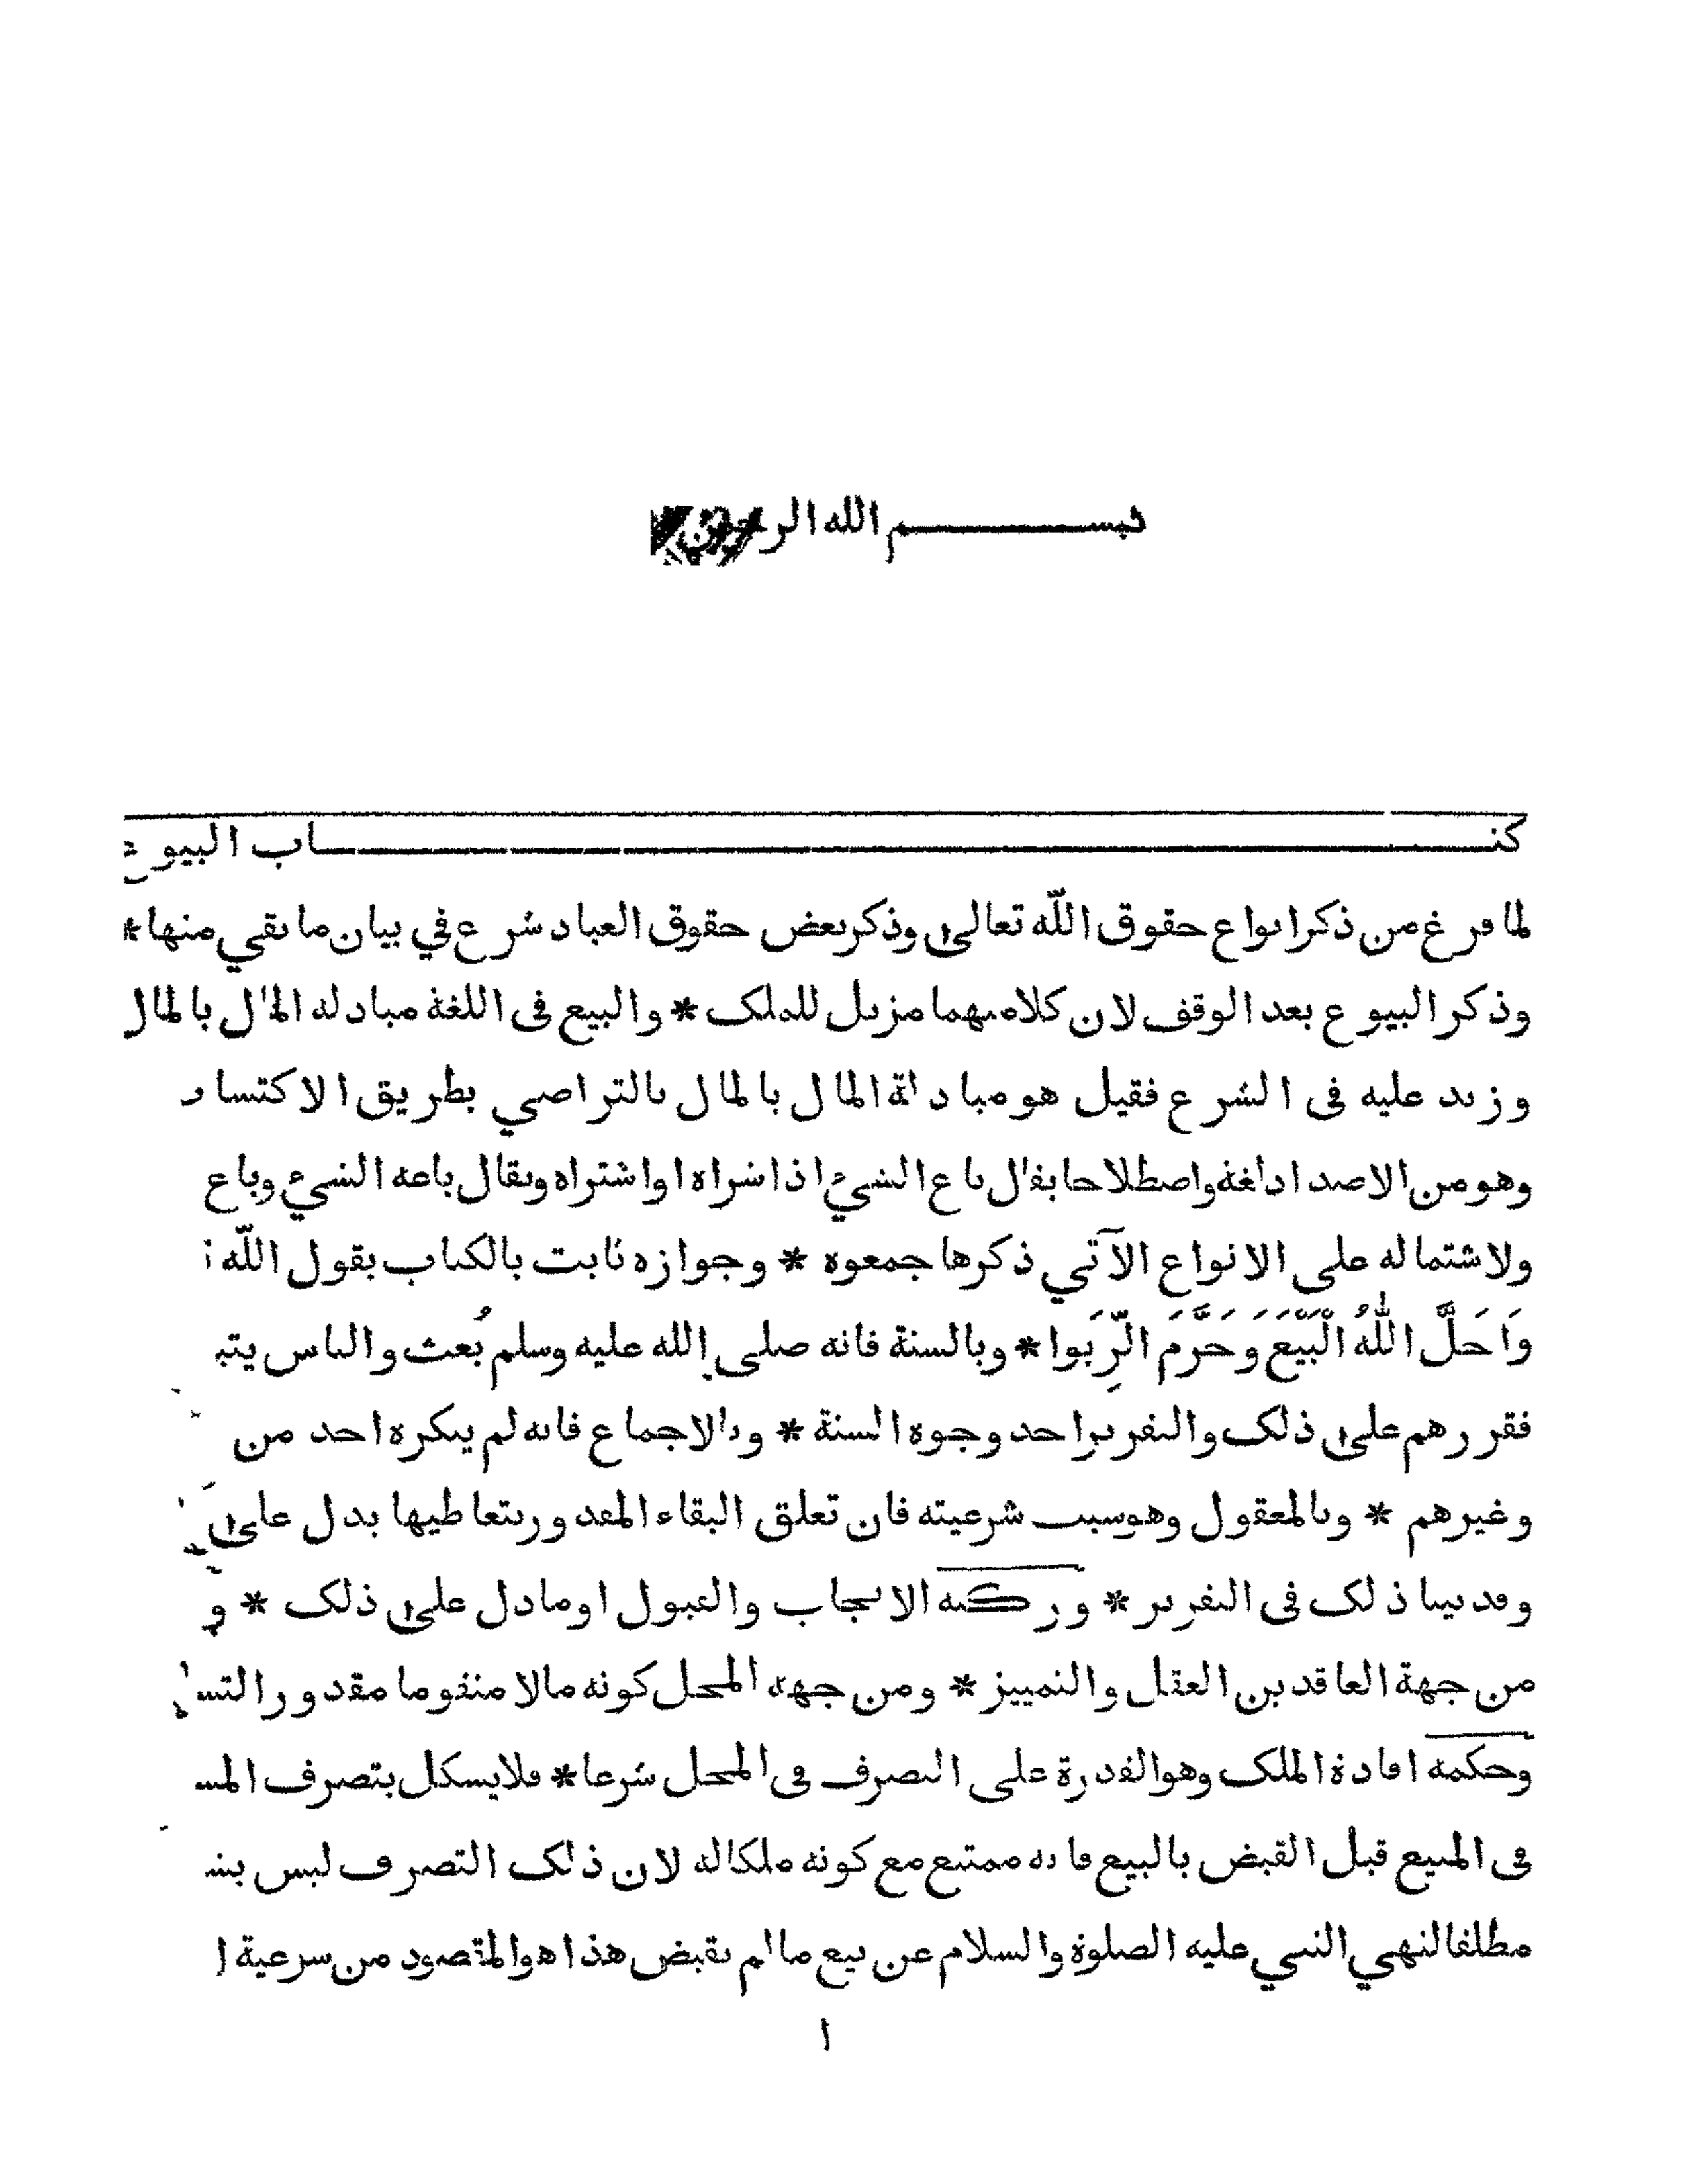 بســـــم الله الرحمن
كتـــــاب البيوع
لما فرغ من ذكر انواع حقوق اللّه تعالى وذكر بعض حقوق العباد شرع في بيان ما بقي منها *
وذكر البيوع بعد الوقف لان كلا منهما مزيل للملك * والبيع فى اللغة مبادلة المال بالمال
وزيد عليه فى الشرع فقيل هو مبادلة المال بالمال بالتراضي بطريق الاكتساب
وهو من الاضداد لغة واصطلاحا يقال باع الشيء اذا شراه او اشتراه ويقال باعه الشيء وباع
ولاشتماله على الانواع الآتي ذكرها جمعوه * وجوازه ثابت بالكتاب بقول اللّه
وَاَحَلَّ اللّٰهُ الْبَيْعَ وَحَرَّمَ الرِّبَوا * وبالسنة فانه صلى الله عليه وسلم بُعث والناس
فقررهم على ذلك والتقرير احد وجوه السنة * وبالاجماع فانه لم ينكره احد من
وغيرهم * وبالمعقول وهو سبب شرعيته فان تعلق البقاء المقدور بتعاطيها يدل على
وقد بينا ذلك فى التقرير * وركنه الايجاب والقبول او ما دل على ذلك *
من جهة العاقدين العقل والتمييز * ومن جهة المحل كونه مالا متقوما مقدور
وحكمه افادة الملك وهو القدرة على التصرف فى المحل شرعا * فلا يشكل بتصرف
فى المبيع قبل القبض بالبيع فانه ممتنع مع كونه ملكا له لان ذلك التصرف ليس
مطلقا لنهي النبي عليه الصلوة والسلام عن بيع ما لم يقبض هذا هو المقصود من شرعية
١